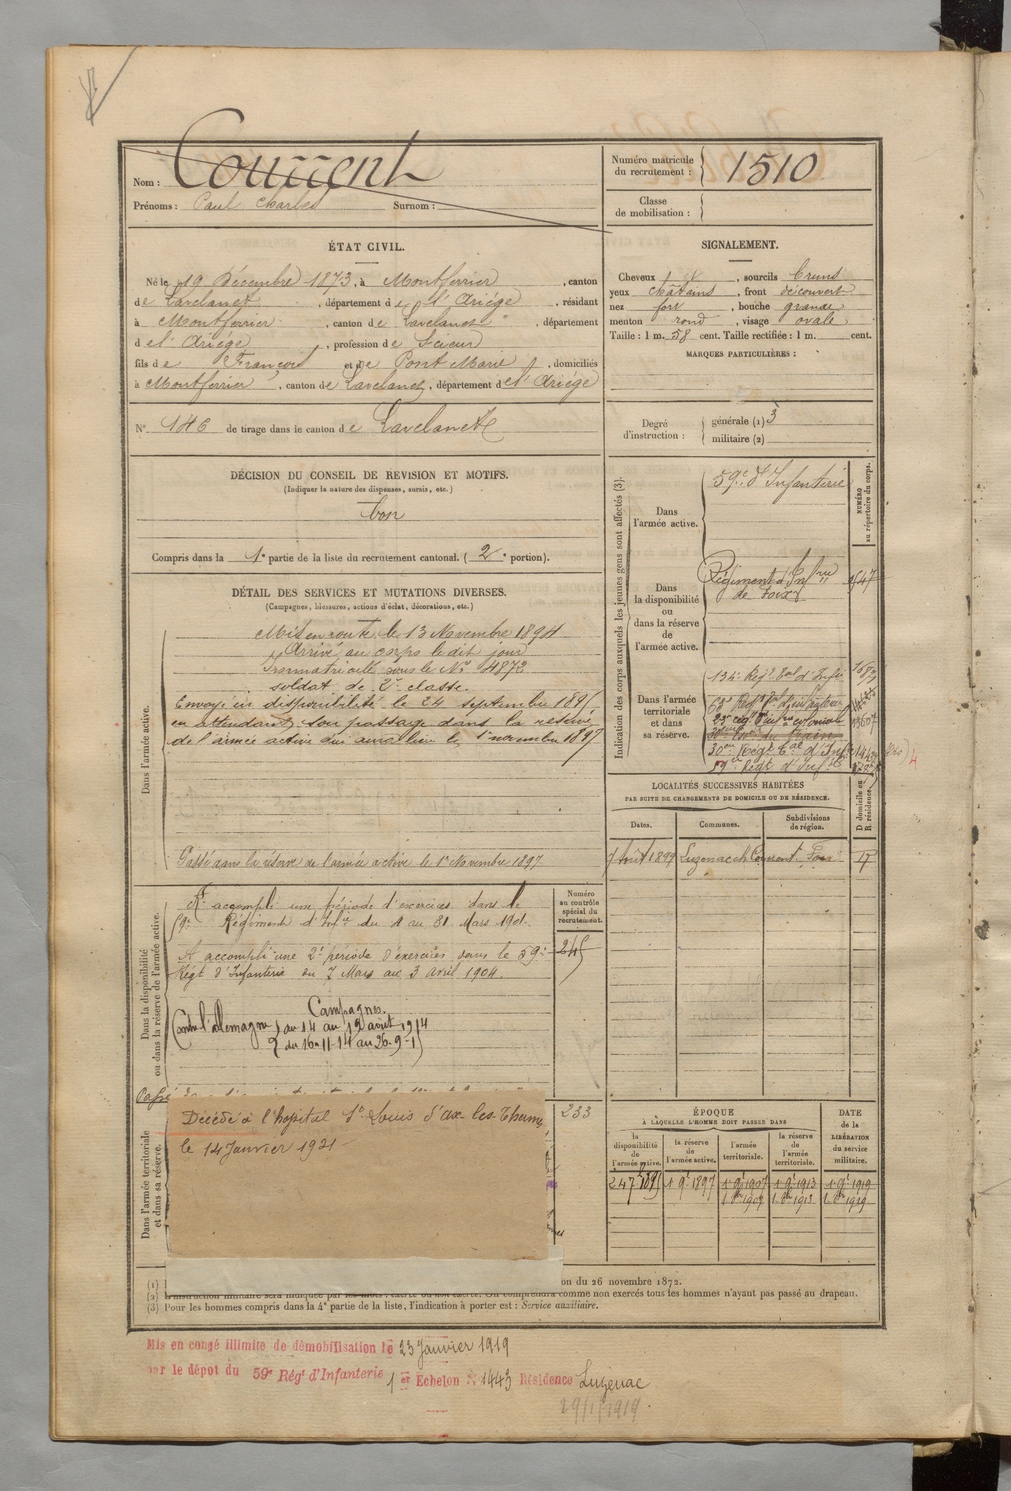 Nom : Courrent
Prénoms : Paul Charles Surnom :
Numéro matricule du recrutement : 1510
Classe de mobilisation :
ÉTAT CIVIL.
Né le 19 Décembre 1873, à Montferrier, canton
de Lavelanet, département de l'Ariége, résidant
à Montferrier, canton de Lavelanet, département
de l'Ariége, profession de
fils de François et de Pont Marie, domiciliés
à Montferrier, canton de Lavelanet, département de l'Ariége
N° 146 de tirage dans le canton de Lavelanet
SIGNALEMENT.
Cheveux, sourcils bruns
yeux chatains, front découvert
nez fort, bouche grande
menton rond, visage ovale
Taille : 1 m. 58 cent. Taille rectifiée : 1 m. cent.
MARQUES PARTICULIÈRES :
Degré d'instruction : générale (1) 3
militaire (2)
DÉCISION DU CONSEIL DE REVISION ET MOTIFS.
(Indiquer la nature des dispenses, sursis, etc.)
bon
Compris dans la 1e partie de la liste du recrutement cantonal. (2e portion).
DÉTAIL DES SERVICES ET MUTATIONS DIVERSES.
(Campagnes, blessures, actions d'éclat, décorations, etc.)
Dans l'armée active.
Mis en route le 13 Novembre 1894
Arrivé au corps le dit jour
Immatriculé sous le No 4872
soldat de 2e classe.
Envoyé en disponibilité le 24 septembre 1895
en attendant son passage dans la réserve
de l'armée active qui aura lieu le 1er novembre 1897
Passé dans la réserve de l'armée active le 1er Novembre 1897
Indication des corps auxquels les jeunes gens sont affectés (3).
NUMÉRO au répertoire du corps.
Dans l'armée active.
59e d'Infanterie
Dans la disponibilité ou dans la réserve de l'armée active.
Régiment d'Infrie
de Foix 1547
Dans l'armée territoriale et dans sa réserve.
134e Regt Tal d'Infie
59e Régt d'Infie
LOCALITÉS SUCCESSIVES HABITÉES
PAR SUITE DE CHANGEMENTS DE DOMICILE OU DE RÉSIDENCE.
Dates. Communes. Subdivisions de région. D. domicile ou R. résidence.
7 Août 1899 Luzenac Foix
Dans la disponibilité ou dans la réserve de l'armée active.
Numéro au contrôle spécial du recrutement.
A accompli une période d'exercices dans le
59e Régiment d'Infie du 4 au 31 Mars 1901.
A accompli une 2e période d'exercices dans le 59e
Régt d'Infanterie du 7 Mars au 3 avril 1904.
245
Campagnes.
Contre l'allemagne { du 14 au 19 août 1914
{ du 16-11-14 au 26-9-15
Passé
Dans l'armée territoriale et dans sa réserve.
Décédé à l'hopital St Louis d'ax les Thermes
le 14 Janvier 1921
233
ÉPOQUE
À LAQUELLE L'HOMME DOIT PASSER DANS
la disponibilité de l'armée active. la réserve de l'armée active. l'armée territoriale. la réserve de l'armée territoriale.
DATE de la LIBÉRATION du service militaire.
24 7bre 1895 1 9bre 1897 1 9bre 1907 1 9bre 1913 1 9bre 1919
1 8bre 1907 1 8bre 1913 1 8bre 1919
(1)
on du 26 novembre 1872.
(2) L'instruction militaire sera indiquée par les mots : exercé ou non exercé. On comprendra comme non exercés tous les hommes n'ayant pas passé au drapeau.
(3) Pour les hommes compris dans la 4e partie de la liste, l'indication à porter est : Service auxiliaire.
Mis en congé illimité de démobilisation le 23 Janvier 1919
par le dépot du 59e Régt d'Infanterie 1er Echelon N° 1443 Résidence Luzenac
29/1/1919.